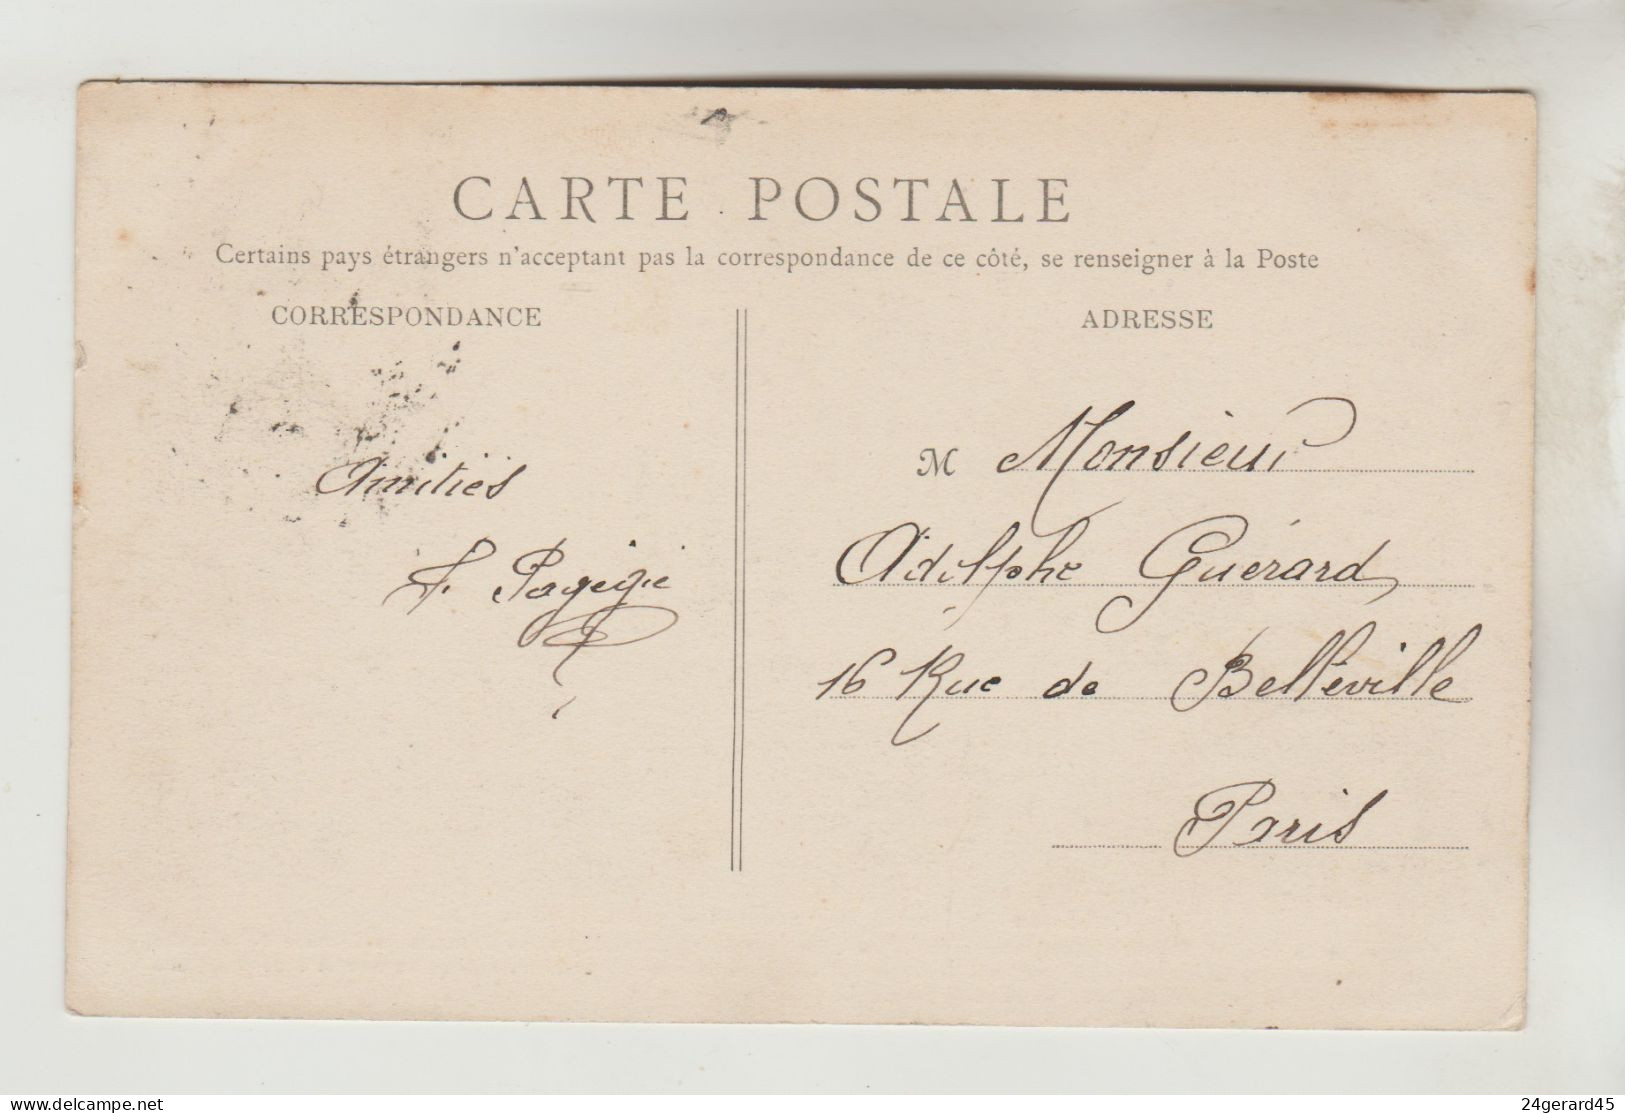 CARTE POSTALE
Certains pays étrangers n'acceptant pas la correspondance de ce côté, se renseigner à la Poste
CORRESPONDANCE
Amitiés
ADRESSE
M Monsieur
Adolphe Guérard
16 Rue de Belleville
Paris
www.delcampe.net
24gerard45